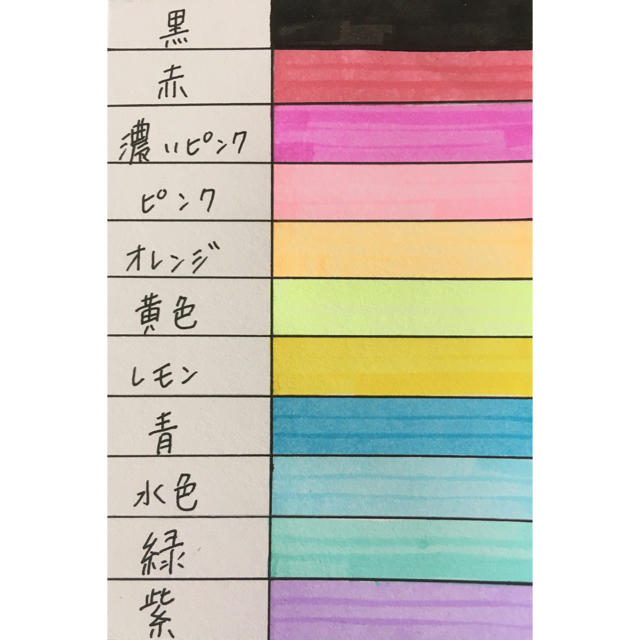 黒
赤
濃いピンク
ピンク
オレンジ
黄色
レモン
青
水色
緑
紫